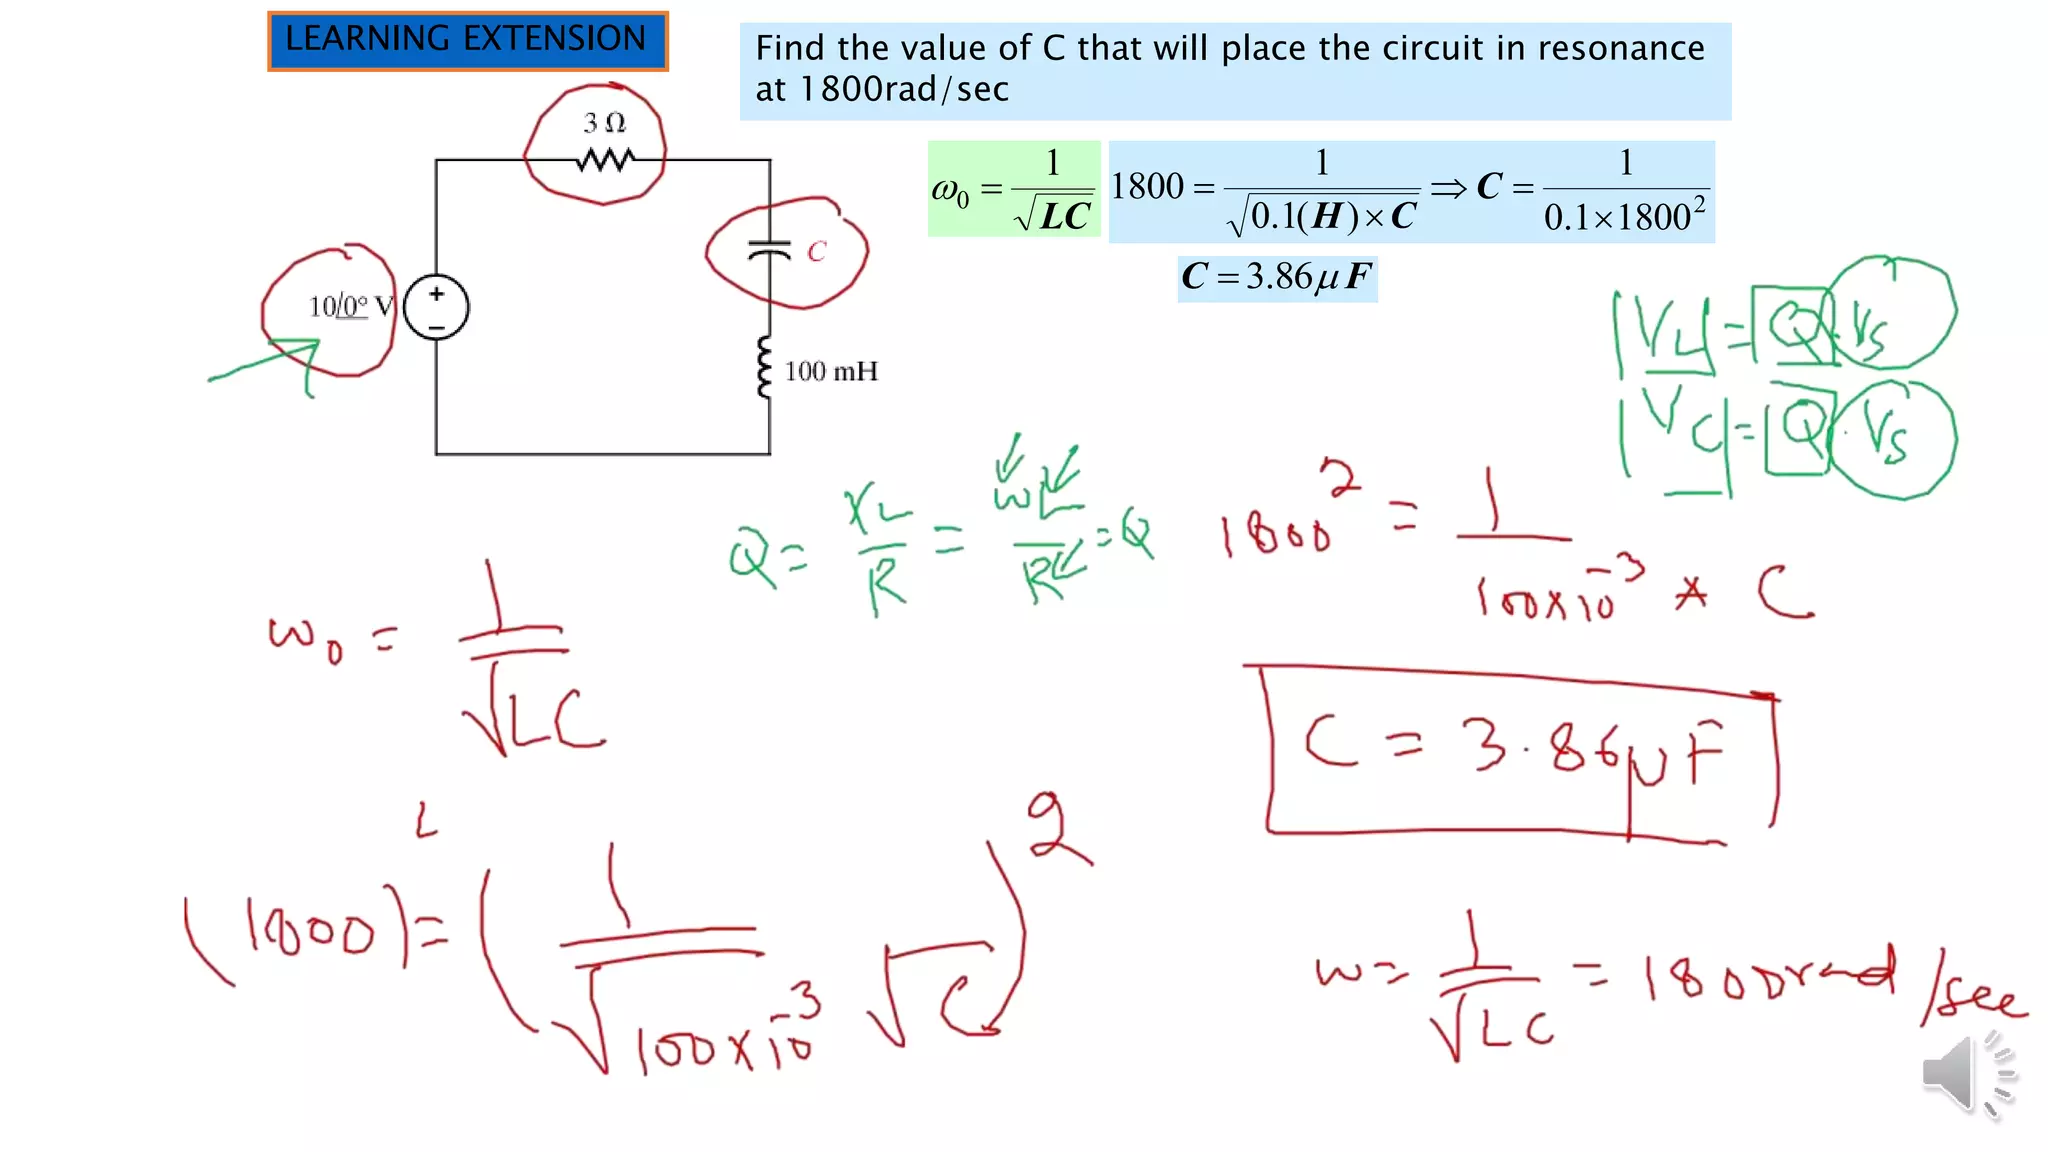 LEARNING EXTENSION
Find the value of C that will place the circuit in resonance
at 1800rad/sec
3 Ω
C
10/0° V
+
−
100 mH
ω₀ = 1/√LC
1800 = 1/√(0.1(H)×C) ⇒ C = 1/(0.1×1800²)
C = 3.86μF
|VL| = Q·Vs
|VC| = Q·Vs
Q = XL/R = wL/R = Q
1800² = 1/(100×10⁻³ * C)
w₀ = 1/√LC
C = 3.86μF
(1800)² = (1/(√100×10⁻³ √C))²
w = 1/√LC = 1800rad/sec